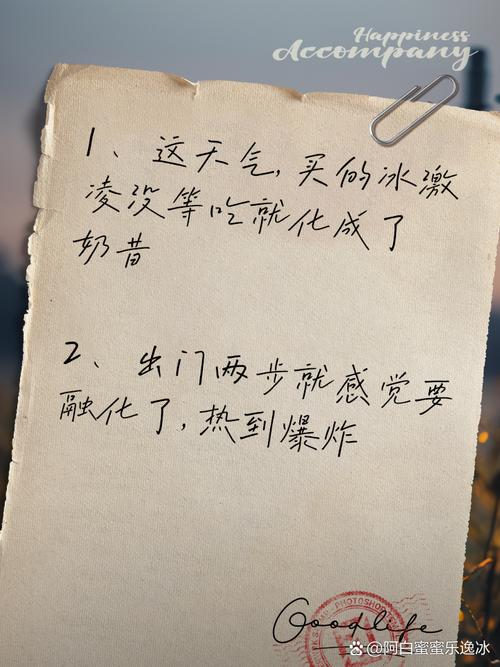 Happiness
Accompany
1、这天气,买的冰激
凌没等吃就化成了
奶昔
2、出门两步就感觉要
融化了,热到爆炸
Goodlife
PHOTOSHOP
@阿白蜜蜜乐逸冰